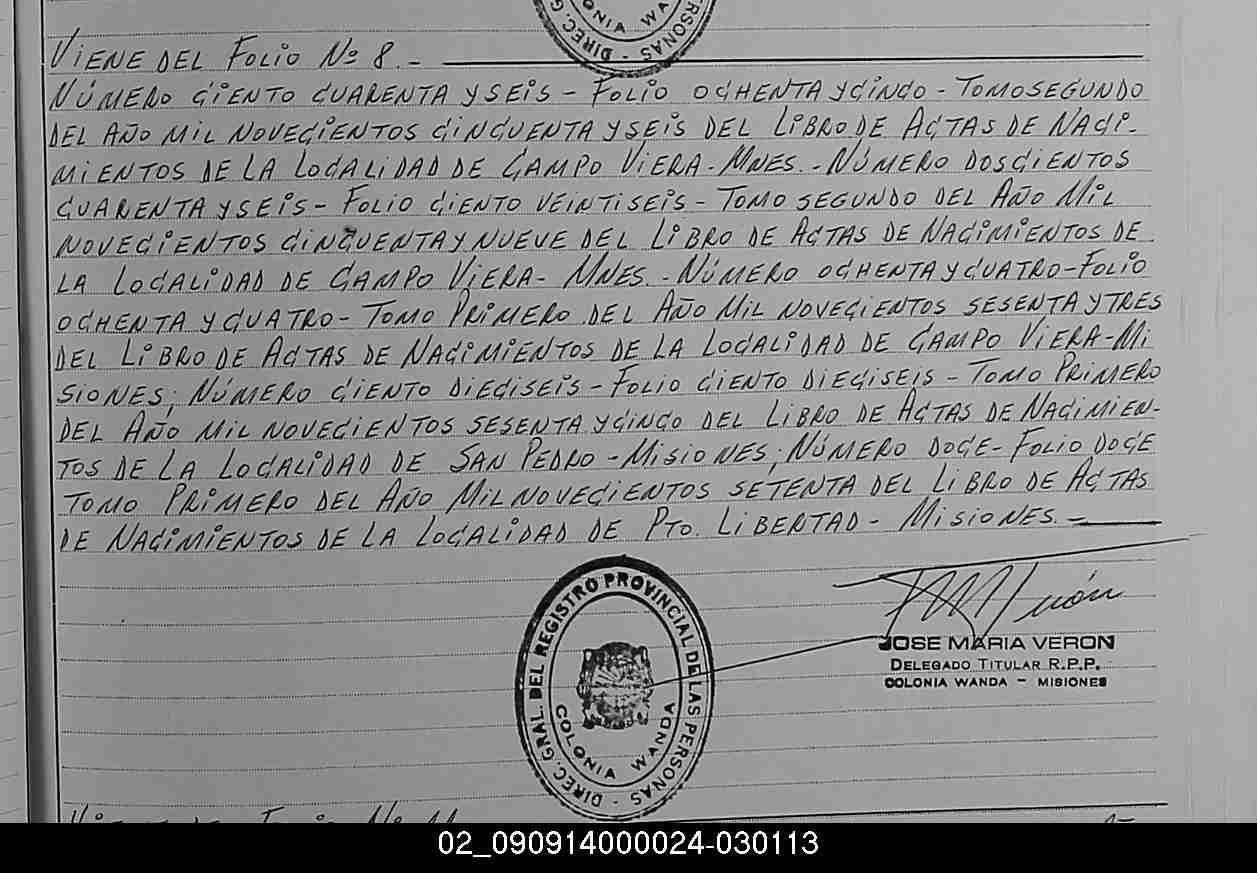 COLONIA WA
DIREC. G
PERSONAS
VIENE DEL FOLIO Nº 8.-
NÚMERO CIENTO CUARENTA Y SEIS - FOLIO OCHENTA Y CINCO - TOMO SEGUNDO
DEL AÑO MIL NOVECIENTOS CINCUENTA Y SEIS DEL LIBRO DE ACTAS DE NACI-
MIENTOS DE LA LOCALIDAD DE CAMPO VIERA - MNES. - NÚMERO DOSCIENTOS
CUARENTA Y SEIS - FOLIO CIENTO VEINTISEIS - TOMO SEGUNDO DEL AÑO MIL
NOVECIENTOS CINCUENTA Y NUEVE DEL LIBRO DE ACTAS DE NACIMIENTOS DE
LA LOCALIDAD DE CAMPO VIERA - MNES. - NÚMERO OCHENTA Y CUATRO - FOLIO
OCHENTA Y CUATRO - TOMO PRIMERO DEL AÑO MIL NOVECIENTOS SESENTA Y TRES
DEL LIBRO DE ACTAS DE NACIMIENTOS DE LA LOCALIDAD DE CAMPO VIERA - MI
SIONES; NÚMERO CIENTO DIECISEIS - FOLIO CIENTO DIECISEIS - TOMO PRIMERO
DEL AÑO MIL NOVECIENTOS SESENTA Y CINCO DEL LIBRO DE ACTAS DE NACIMIEN-
TOS DE LA LOCALIDAD DE SAN PEDRO - MISIONES; NÚMERO DOCE - FOLIO DOCE
TOMO PRIMERO DEL AÑO MIL NOVECIENTOS SETENTA DEL LIBRO DE ACTAS
DE NACIMIENTOS DE LA LOCALIDAD DE PTO. LIBERTAD - MISIONES. -
DIREC. GRAL. DEL REGISTRO PROVINCIAL DE LAS PERSONAS -
COLONIA WANDA
JOSE MARIA VERON
DELEGADO TITULAR R.P.P.
COLONIA WANDA - MISIONES
02_090914000024-030113